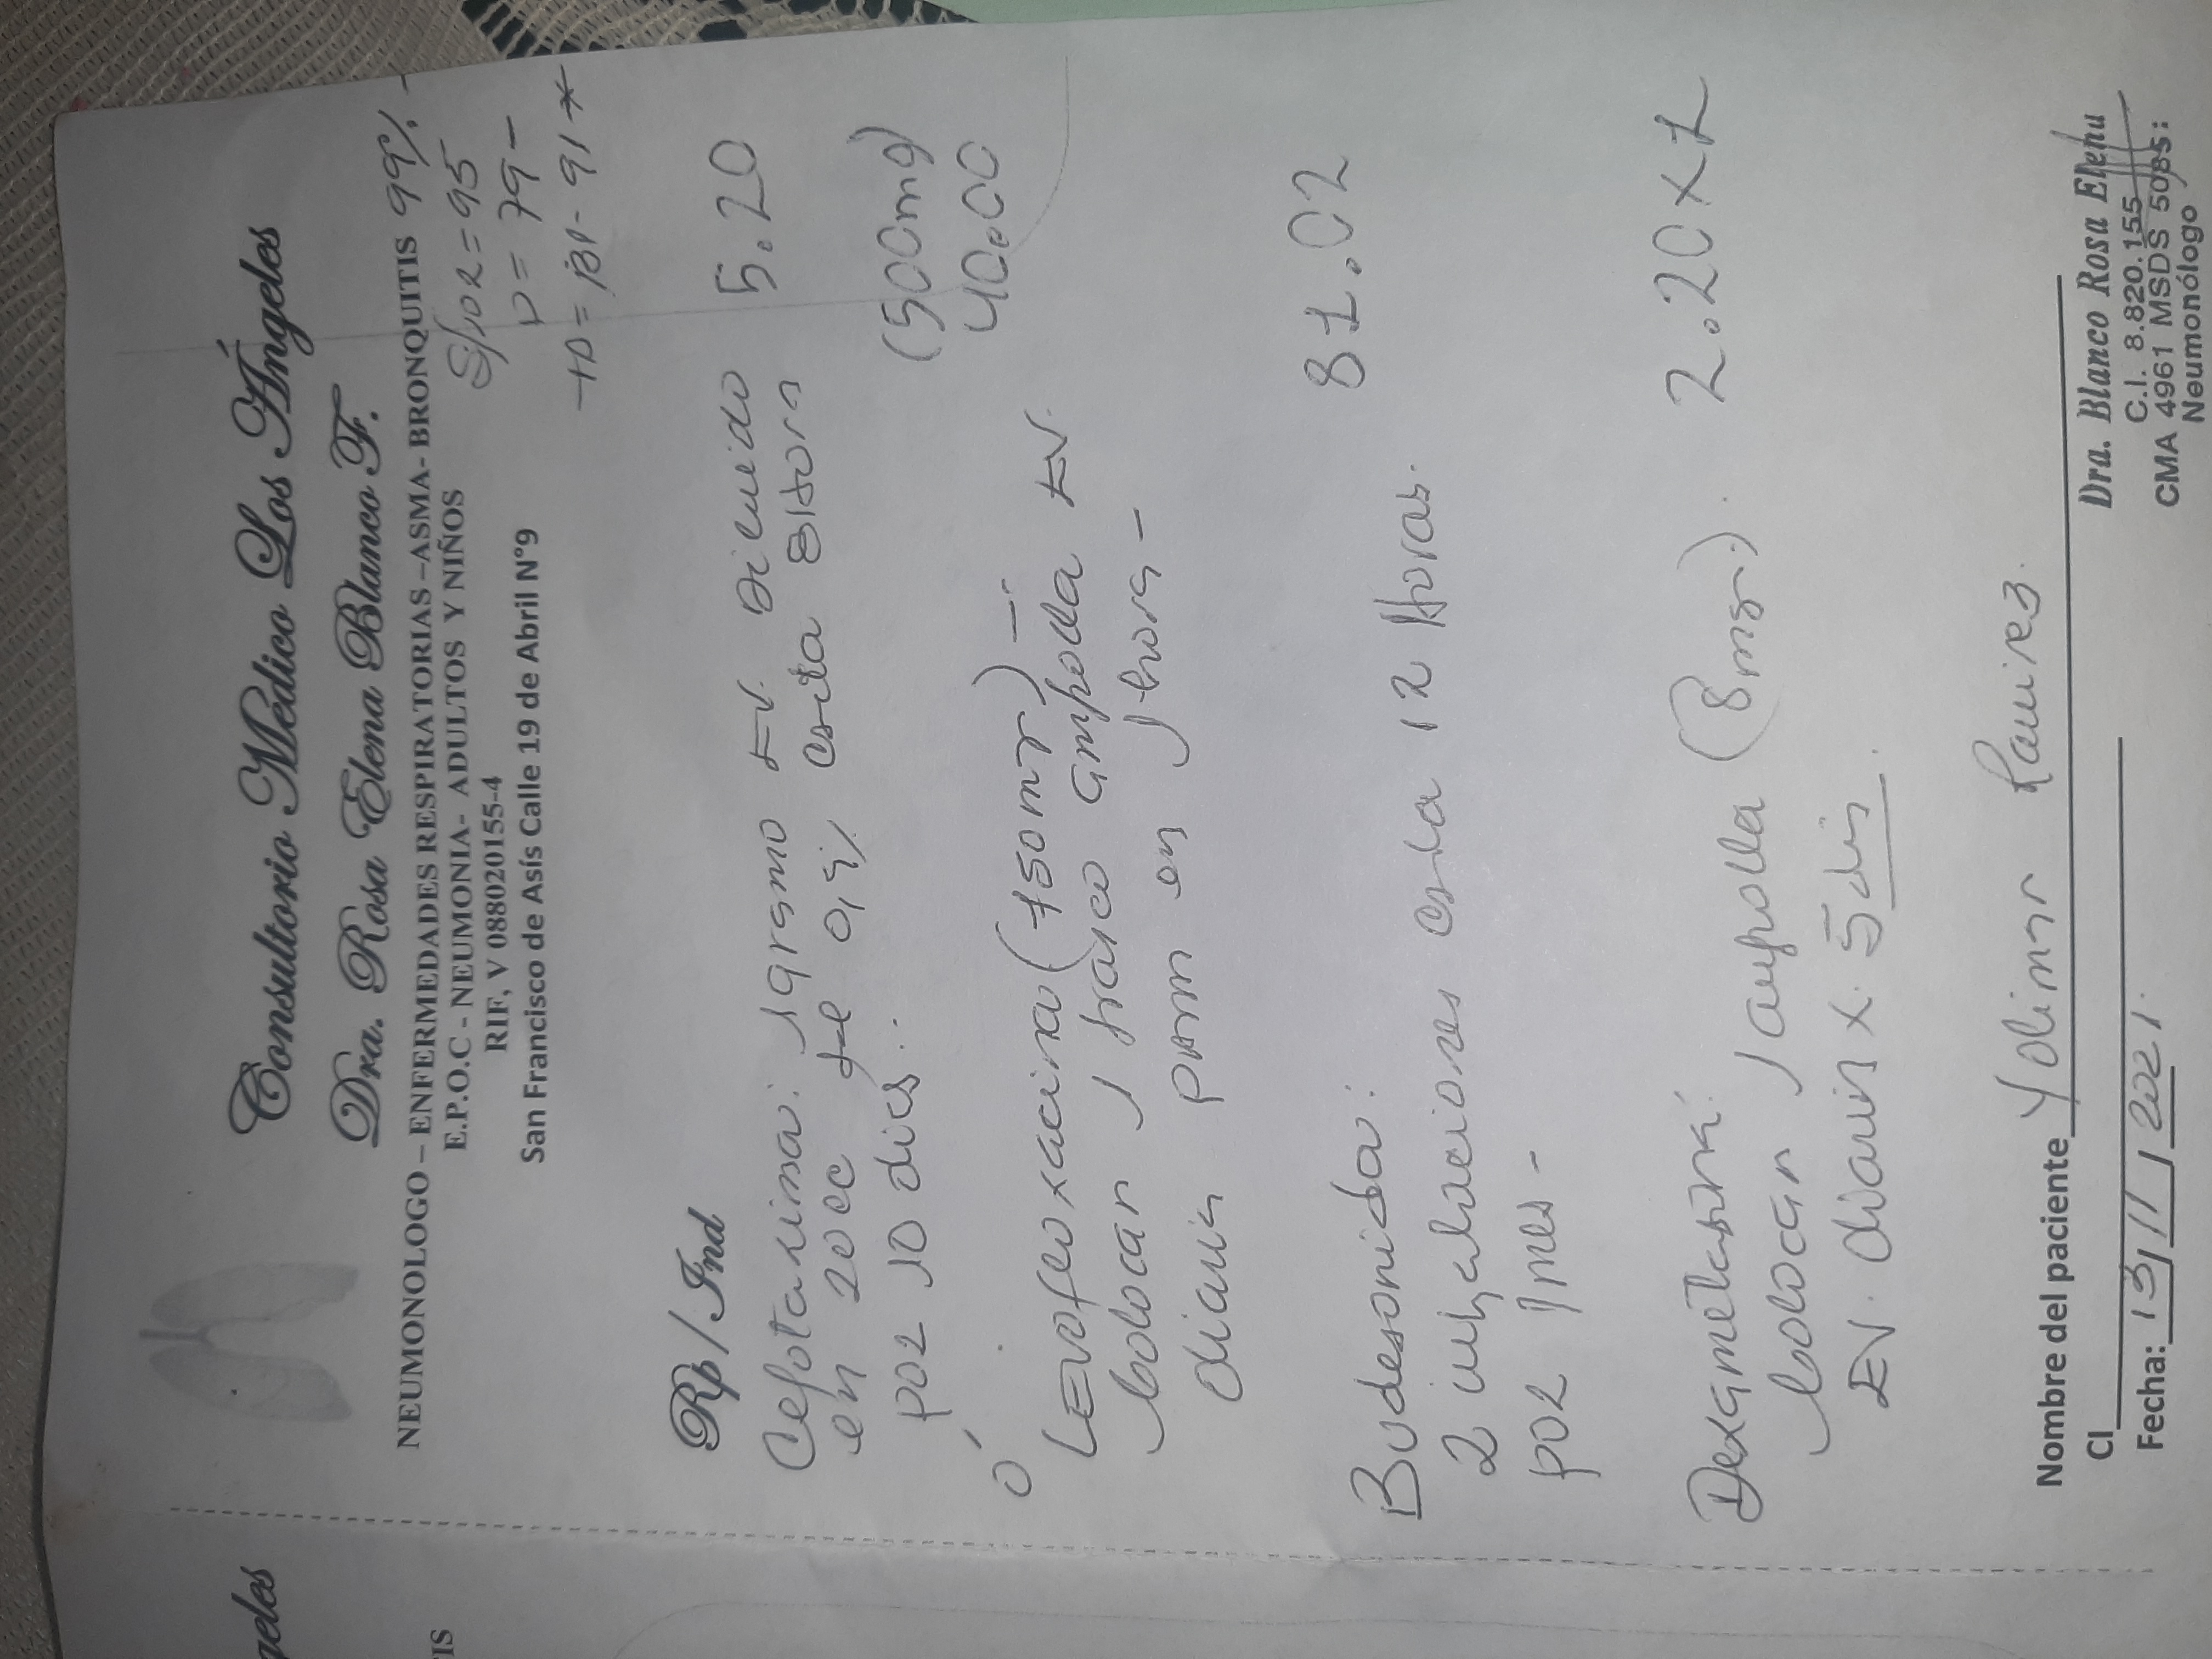 Consultorio Médico Los Ángeles
Dra. Rosa Elena Blanco F.
NEUMONOLOGO – ENFERMEDADES RESPIRATORIAS –ASMA- BRONQUITIS 99%-
E.P.O.C - NEUMONIA- ADULTOS Y NIÑOS
RIF, V 088020155-4
San Francisco de Asís Calle 19 de Abril N°9
S/O2 = 95
P = 79 -
TA = 131- 91 *
Rp / Ind
Cefotaxima: 1gramo EV. Diluido 5.20
en 20cc de 0,9% cada 8 Hora
por 10 dias.
(500mg)
ó
Levofloxacina (750mg) - 40.00
Colocar 1 frasco ampolla EV.
diaria para en 1 hora -
Budesonida: 81.02
2 inhalaciones cada 12 Horas.
por 1 mes -
Dexametasona: 2.20 x 1
Colocar 1 ampolla (8mg).
EV. diaria x 5 dias.
Nombre del paciente Yolimar Ramirez.
CI
Fecha: 13/11/2021.
Dra. Blanco Rosa Elena
C.I. 8.820.155
CMA 4961 MSDS 5085:
Neumonólogo
ngeles
TIS